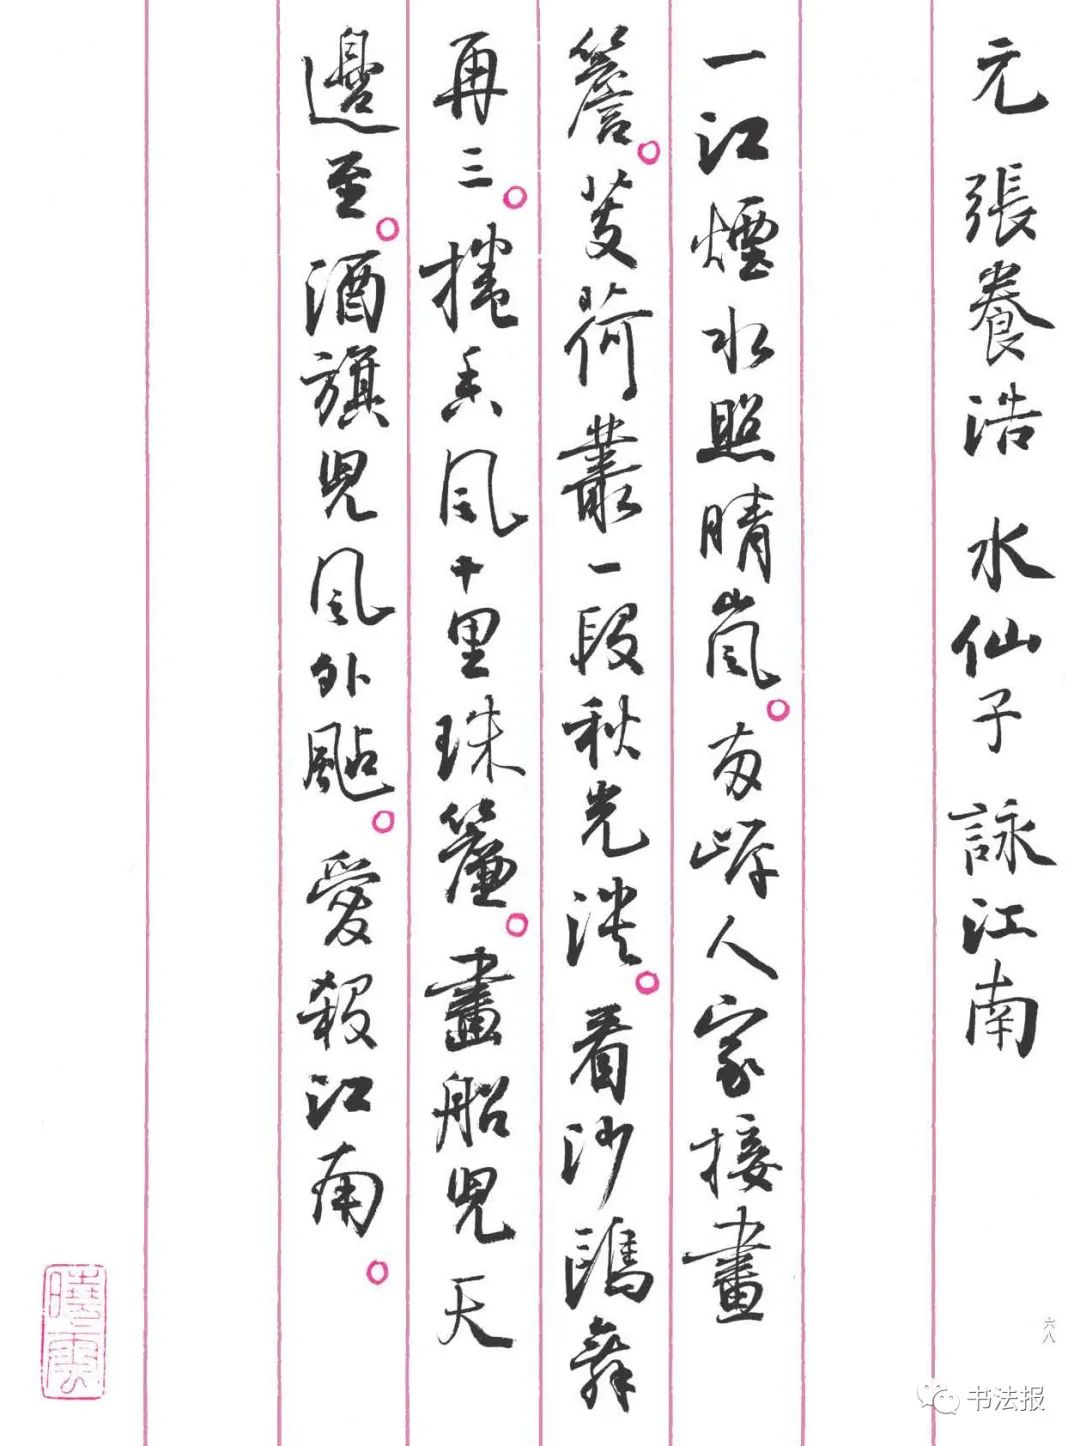 元 張養浩 水仙子 詠江南
一江煙水照晴嵐。两岸人家接畫
簷。芰荷叢一段秋光淡。看沙鷗舞
再三。捲香風十里珠簾。畫船兒天
邊至。酒旗兒風外颭。愛殺江南。
六八
书法报